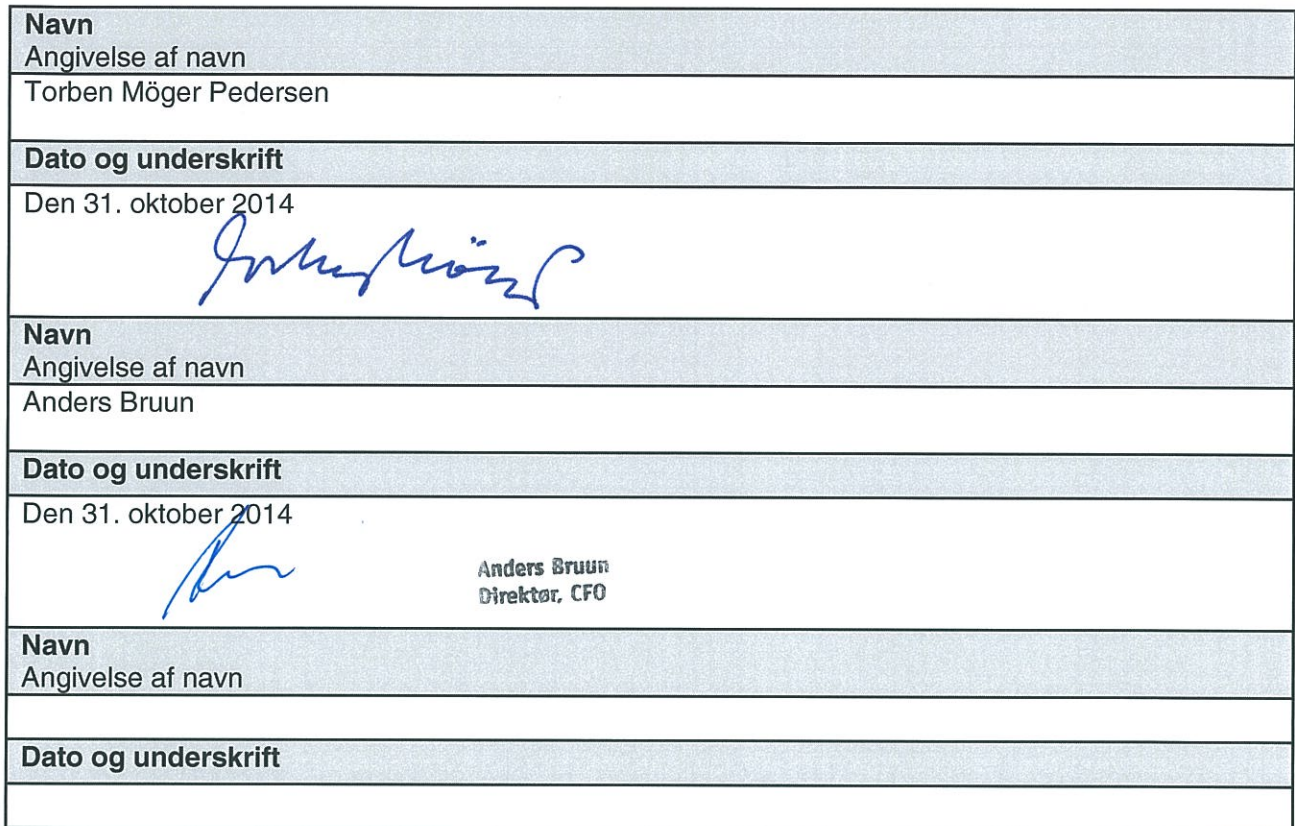 Navn
Angivelse af navn
Torben Möger Pedersen
Dato og underskrift
Den 31. oktober 2014
Navn
Angivelse af navn
Anders Bruun
Dato og underskrift
Den 31. oktober 2014
Anders Bruun
Direktør, CFO
Navn
Angivelse af navn
Dato og underskrift